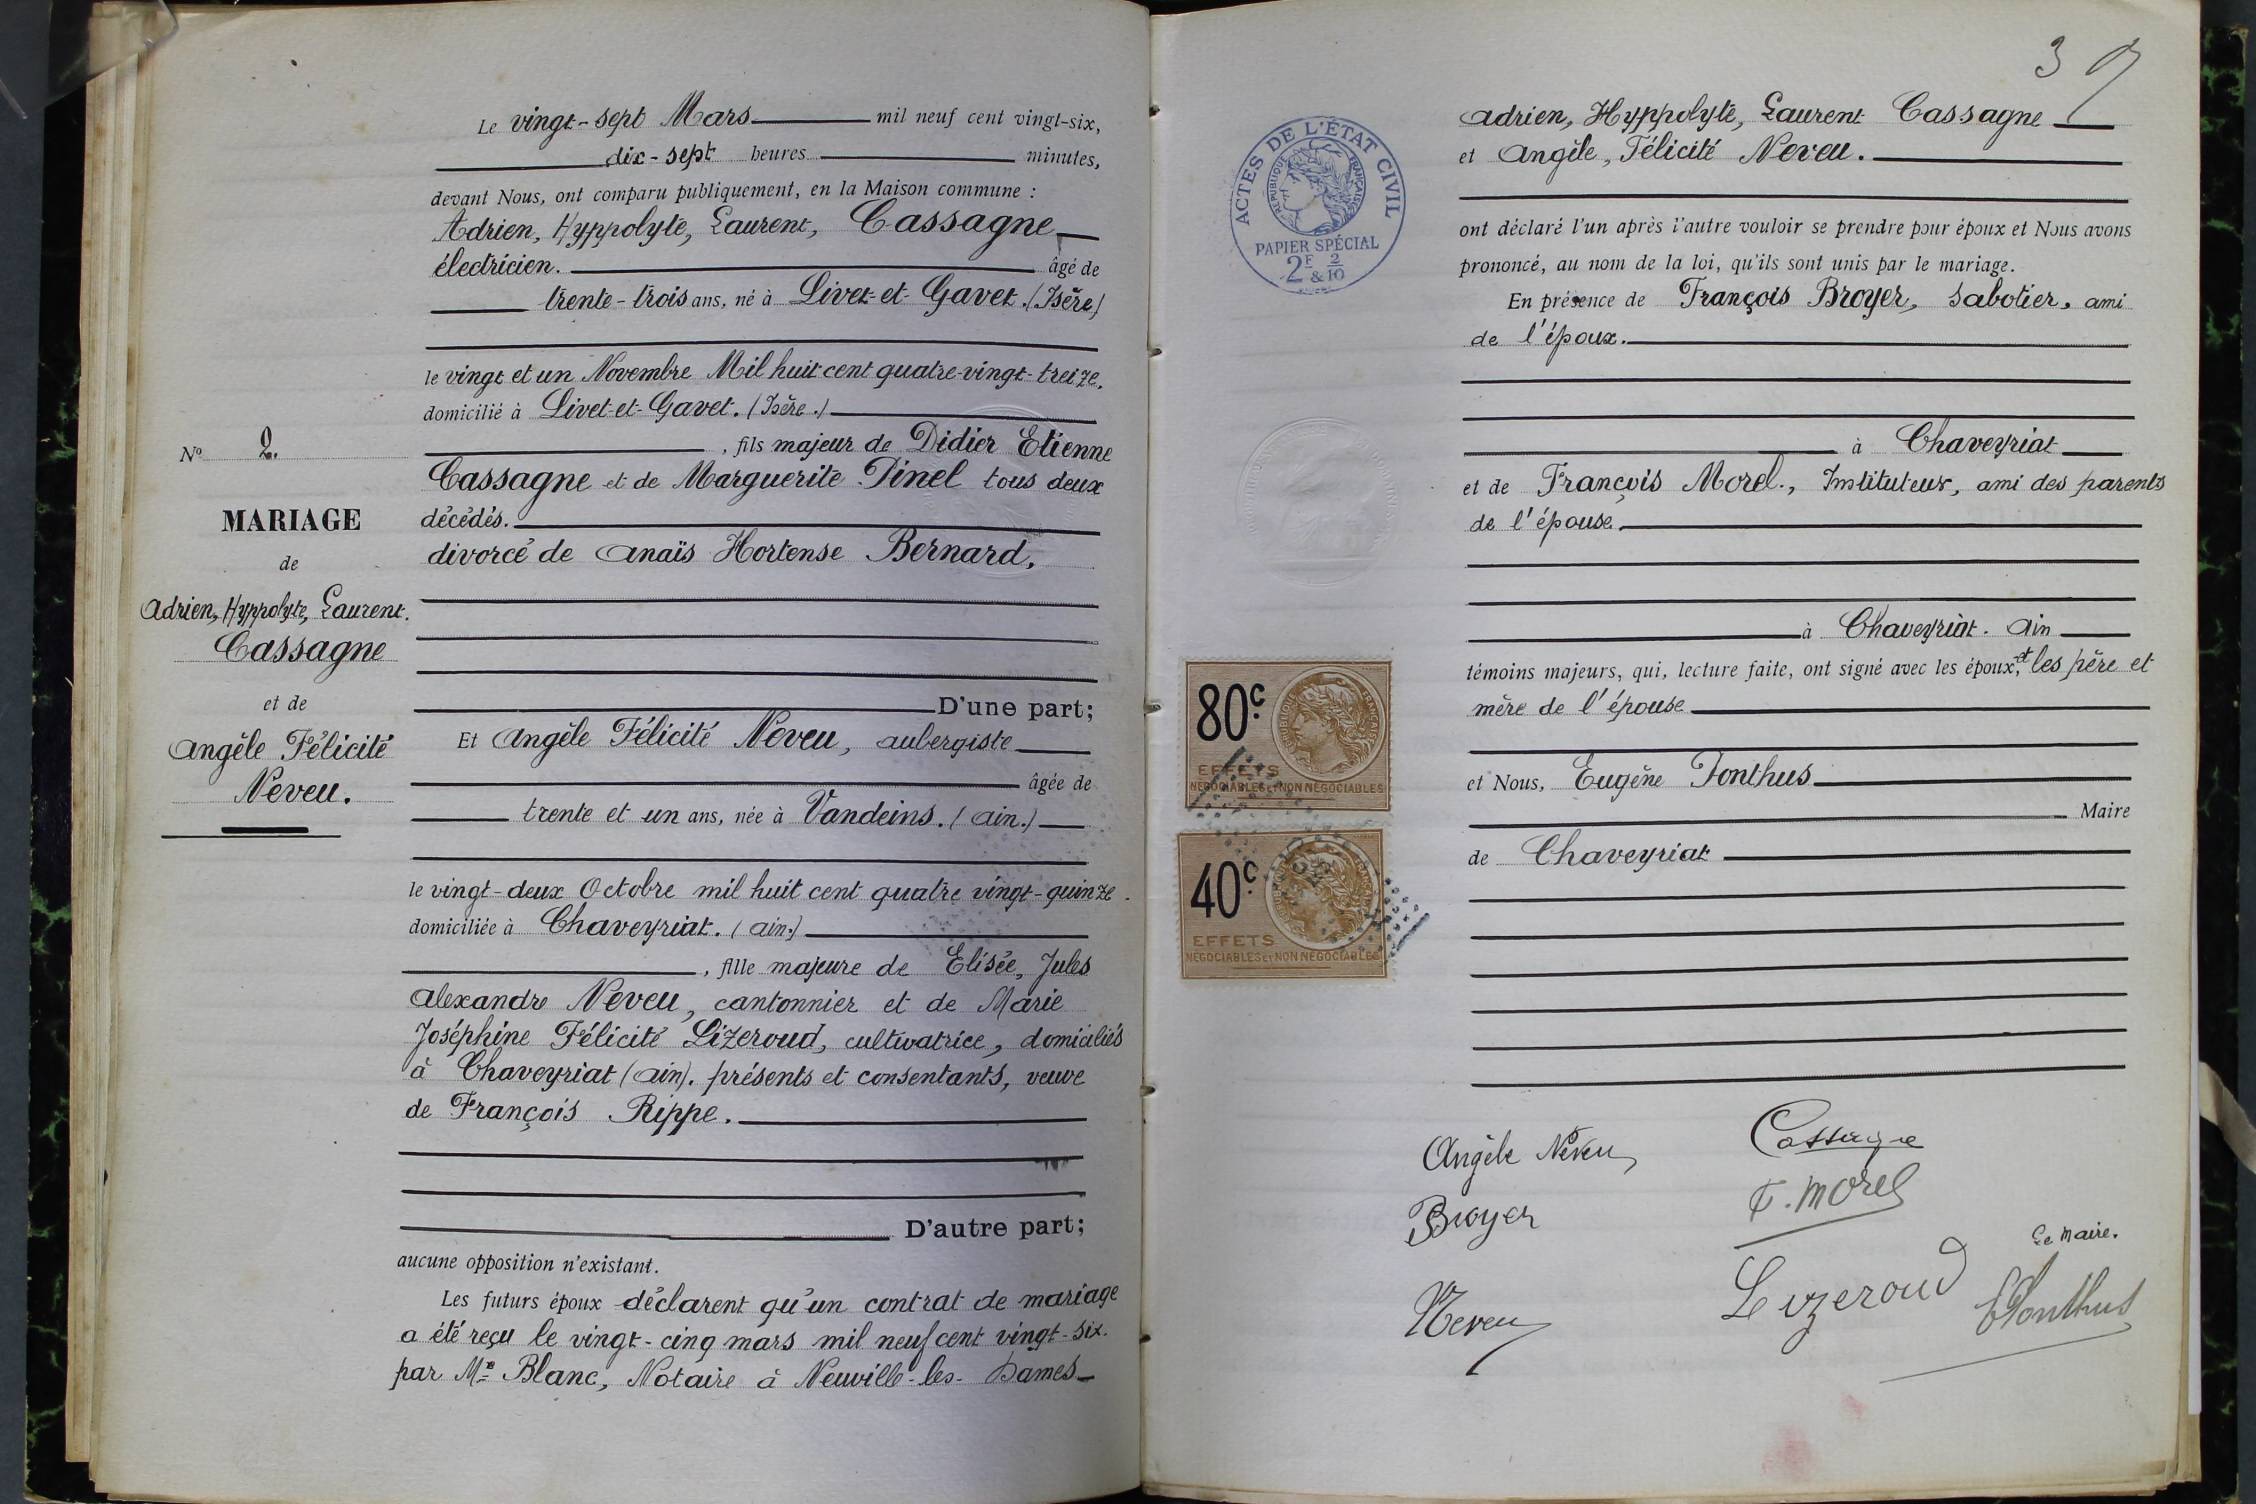 Le vingt-sept Mars mil neuf cent vingt-six,
dix-sept heures minutes,
devant Nous, ont comparu publiquement, en la Maison commune :
Adrien, Hyppolyte, Laurent, Cassagne
électricien. âgé de
trente-trois ans, né à Livet-et-Gavet. (Isère)
le vingt et un Novembre Mil huit cent quatre-vingt-treize.
domicilié à Livet-et-Gavet. (Isère.)
, fils majeur de Didier Etienne
Cassagne et de Marguerite Pinel tous deux
décédés.
divorcé de Anaïs Hortense Bernard.
D'une part;
Et Angèle Félicité Neveu, aubergiste
âgée de
trente et un ans, née à Vandeins. (Ain.)
le vingt-deux Octobre mil huit cent quatre vingt-quinze.
domiciliée à Chaveyriat. (Ain.)
, fille majeure de Elisée, Jules
Alexandre Neveu, cantonnier et de Marie
Joséphine Félicité Lizeroud, cultivatrice, domiciliés
à Chaveyriat (Ain). présents et consentants, veuve
de François Rippe.
D'autre part;
aucune opposition n'existant.
Les futurs époux déclarent qu'un contrat de mariage
a été reçu le vingt-cinq mars mil neuf cent vingt-six.
par Me Blanc, Notaire à Neuville-les-Dames
No 2.
MARIAGE
de
Adrien, Hyppolyte, Laurent.
Cassagne
et de
Angèle Félicité
Neveu.
3
Adrien, Hyppolyte, Laurent Cassagne
et Angèle, Félicité Neveu.
ont déclaré l'un après l'autre vouloir se prendre pour époux et Nous avons
prononcé, au nom de la loi, qu'ils sont unis par le mariage.
En présence de François Broyer, sabotier, ami
de l'époux.
à Chaveyriat
et de François Morel., Instituteur, ami des parents
de l'épouse
à Chaveyriat. Ain
témoins majeurs, qui, lecture faite, ont signé avec les époux, et les père et
mère de l'épouse
et Nous, Eugène Ponthus
Maire
de Chaveyriat
ACTES DE L'ÉTAT CIVIL
RÉPUBLIQUE FRANÇAISE
PAPIER SPÉCIAL
2F & 2/10
80c
RÉPUBLIQUE FRANÇAISE
EFFETS
NÉGOCIABLES ET NON NÉGOCIABLES
40c
EFFETS
NÉGOCIABLES ET NON NÉGOCIABLES
Angèle Neveu
Cassagne
Broyer
F. Morel
Le Maire.
Neveu
Lizeroud
EPonthus